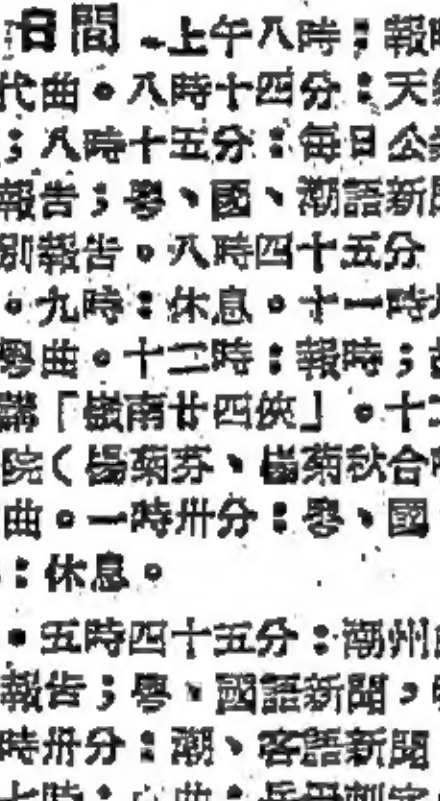 日間　上午八時；報時
代曲。八時十四分：天
；八時十五分：每日公
報告；粵、國、潮語新聞
別報告。八時四十五分
。九時：休息。十一時
粵曲。十二時：報時；
講「嶺南廿四俠」。十二
院（楊菊芬、楊菊秋合
曲。一時卅分：粵、國
：休息。
。五時四十五分：潮州
報告；粵、國語新聞，
時卅分：潮、客語新聞
七時：